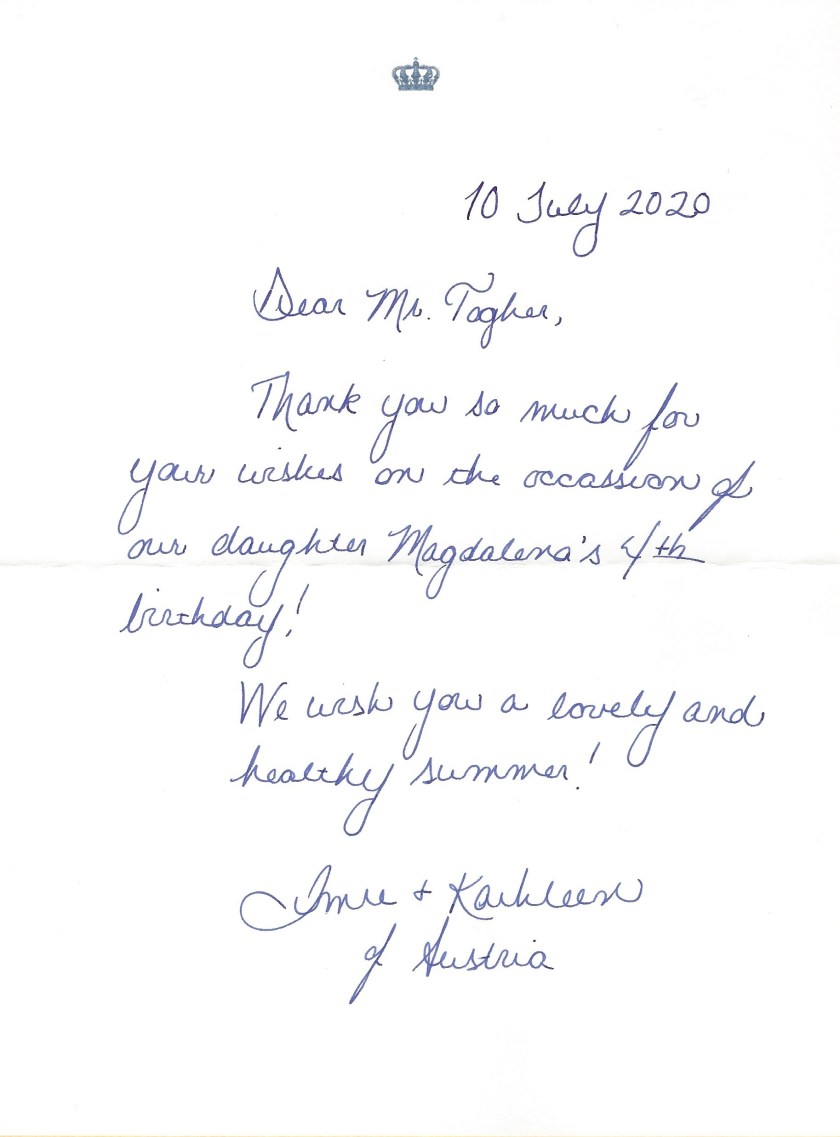 10 July 2020
Dear Mr. Togher,
Thank you so much for
your wishes on the occassion of
our daughter Magdalena's 4th
birthday!
We wish you a lovely and
healthy summer!
Imre + Kathleen
of Austria